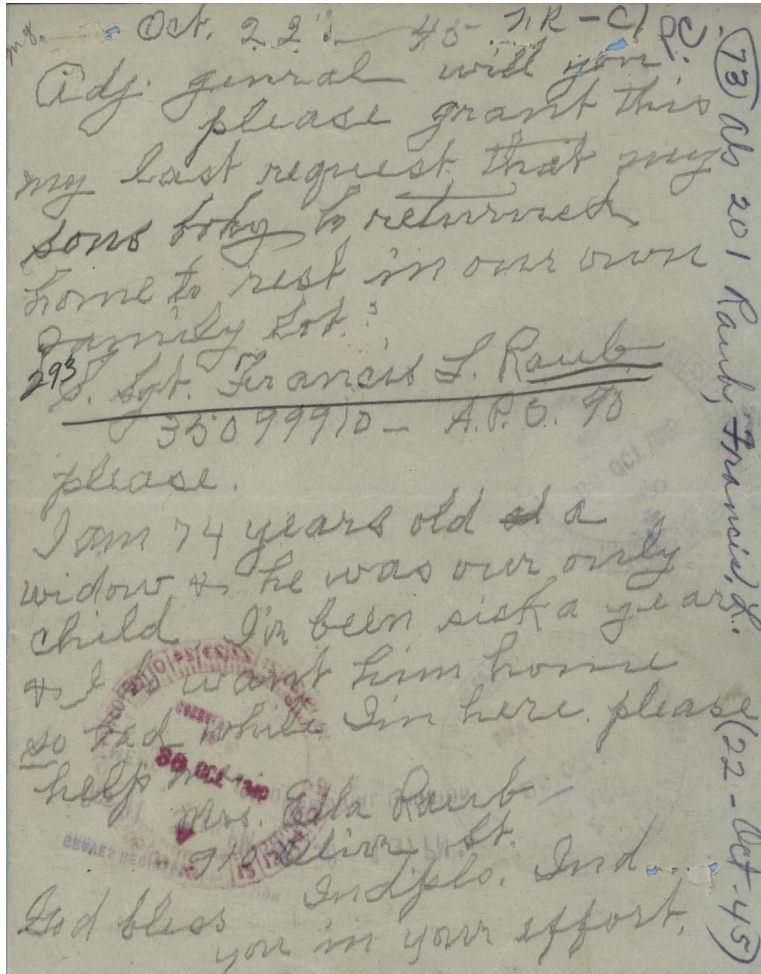 Oct. 22 - 45 NR-Cl
Adj. genral will you
please grant this
my last request that my
sons body be returned
home to rest in our own
family lot.
293
S. Sgt. Francis L. Raub
35099910 - A.P.O. 90
please.
I am 74 years old a
widow & he was our only
child I'v been sick a year
& I do want him home
so bad while I'm here. please
help me.
Mrs. Ella Raub
St.
Indpls. Ind
God bless
you in your effort.
(73) ab 201 Raub, Francis, L. (22-Oct-45)